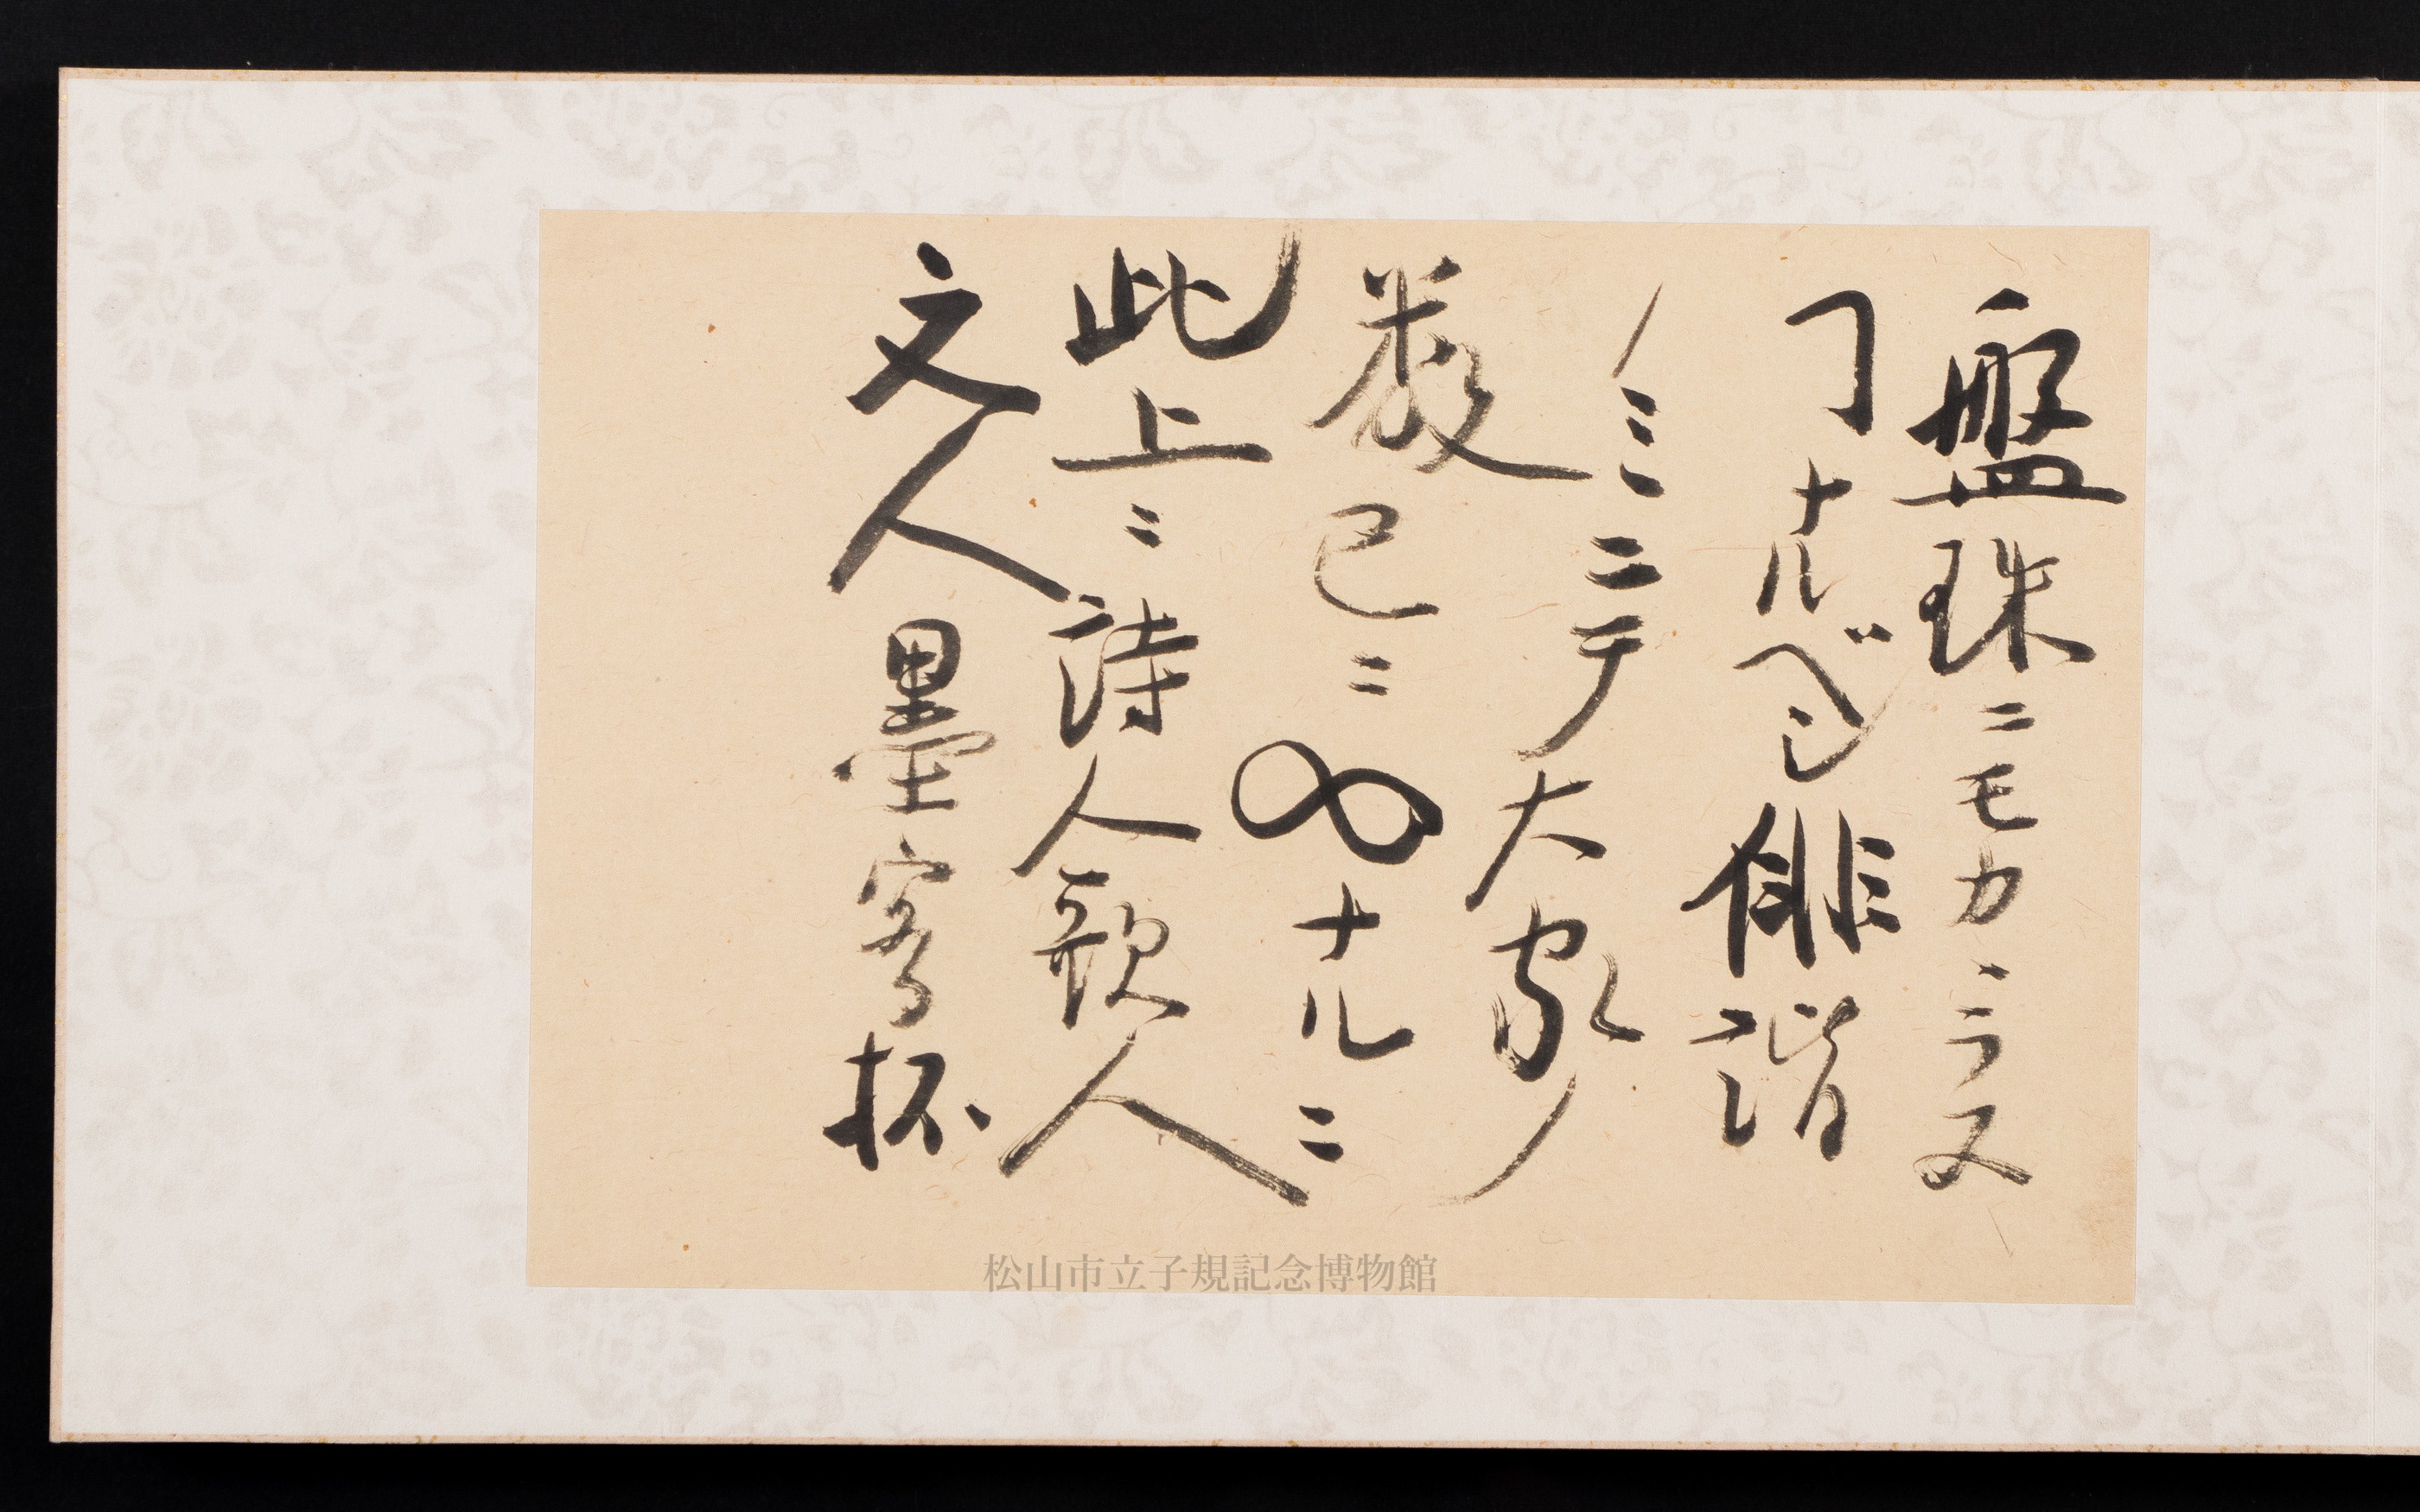 盤珠ニモカヽラヌ
ヿナルベシ俳諧
ノミニテ大家ノ
数已ニ∞ナルニ
此上ニ詩人歌人
文人墨客抔
松山市立子規記念博物館